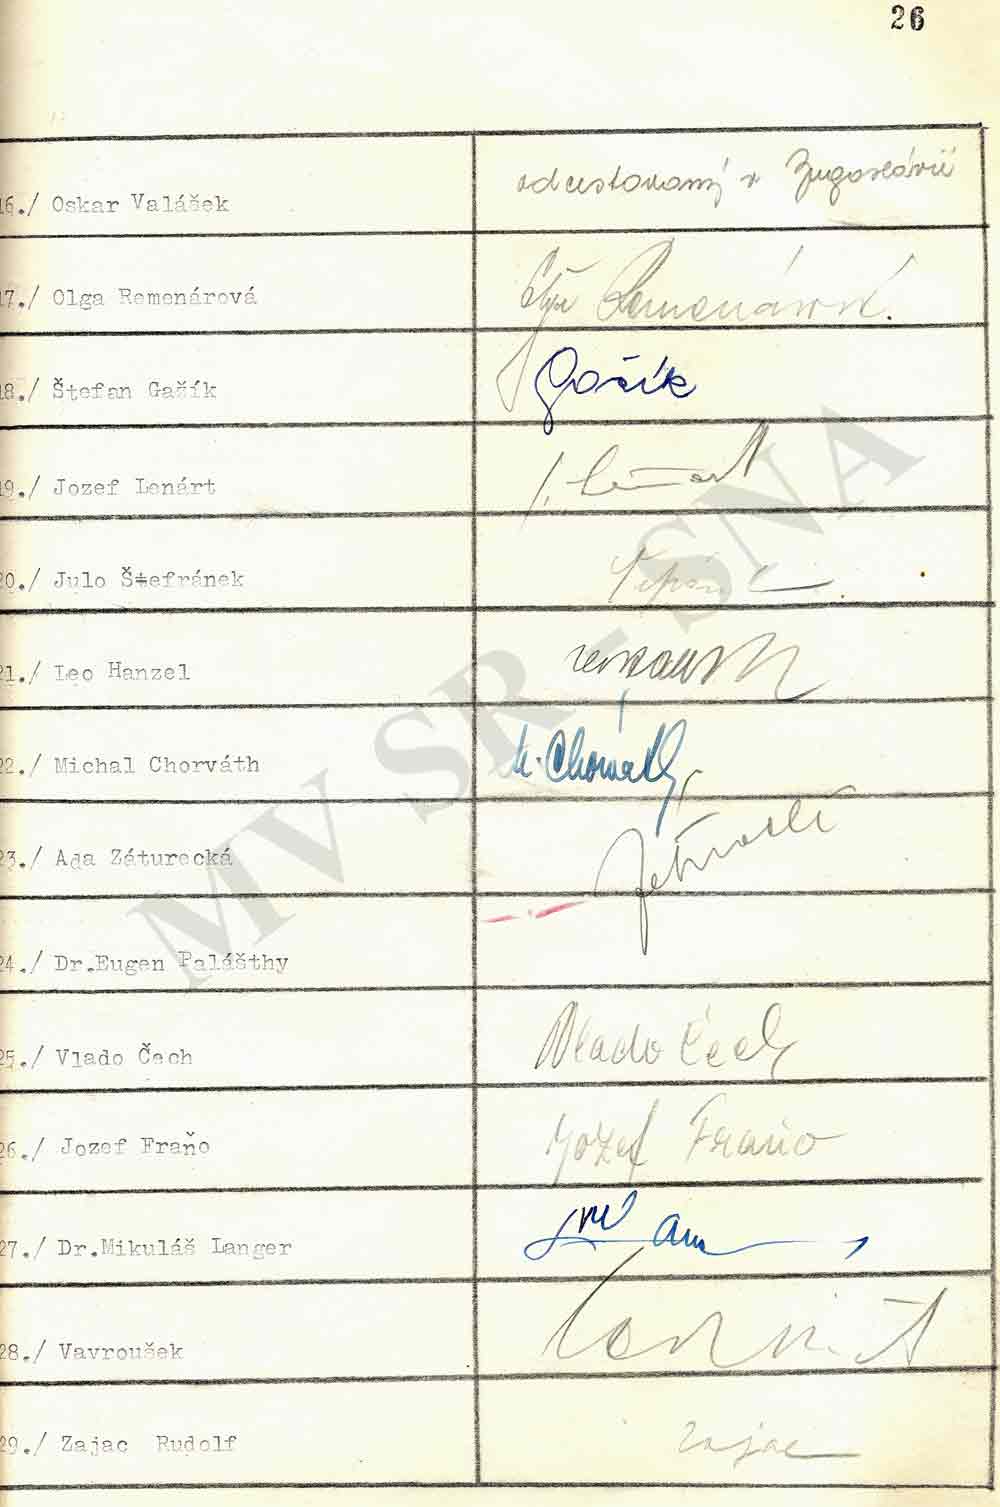 26
16./ Oskar Valášek odcestovaný v Jugoslávii
17./ Olga Remenárová Oľga Remenárová.
18./ Štefan Gažík Gažík
19./ Jozef Lenárt J. Lenárt
20./ Julo Štefránek
21./ Leo Hanzel
22./ Michal Chorváth M. Chorváth
23./ Ada Záturecká
24./ Dr.Eugen Palášthy
25./ Vlado Čech Vlado Čech
26./ Jozef Fraňo Jozef Fraňo
27./ Dr.Mikuláš Langer
28./ Vavroušek
29./ Zajac Rudolf Zajac
MV SR - SNA